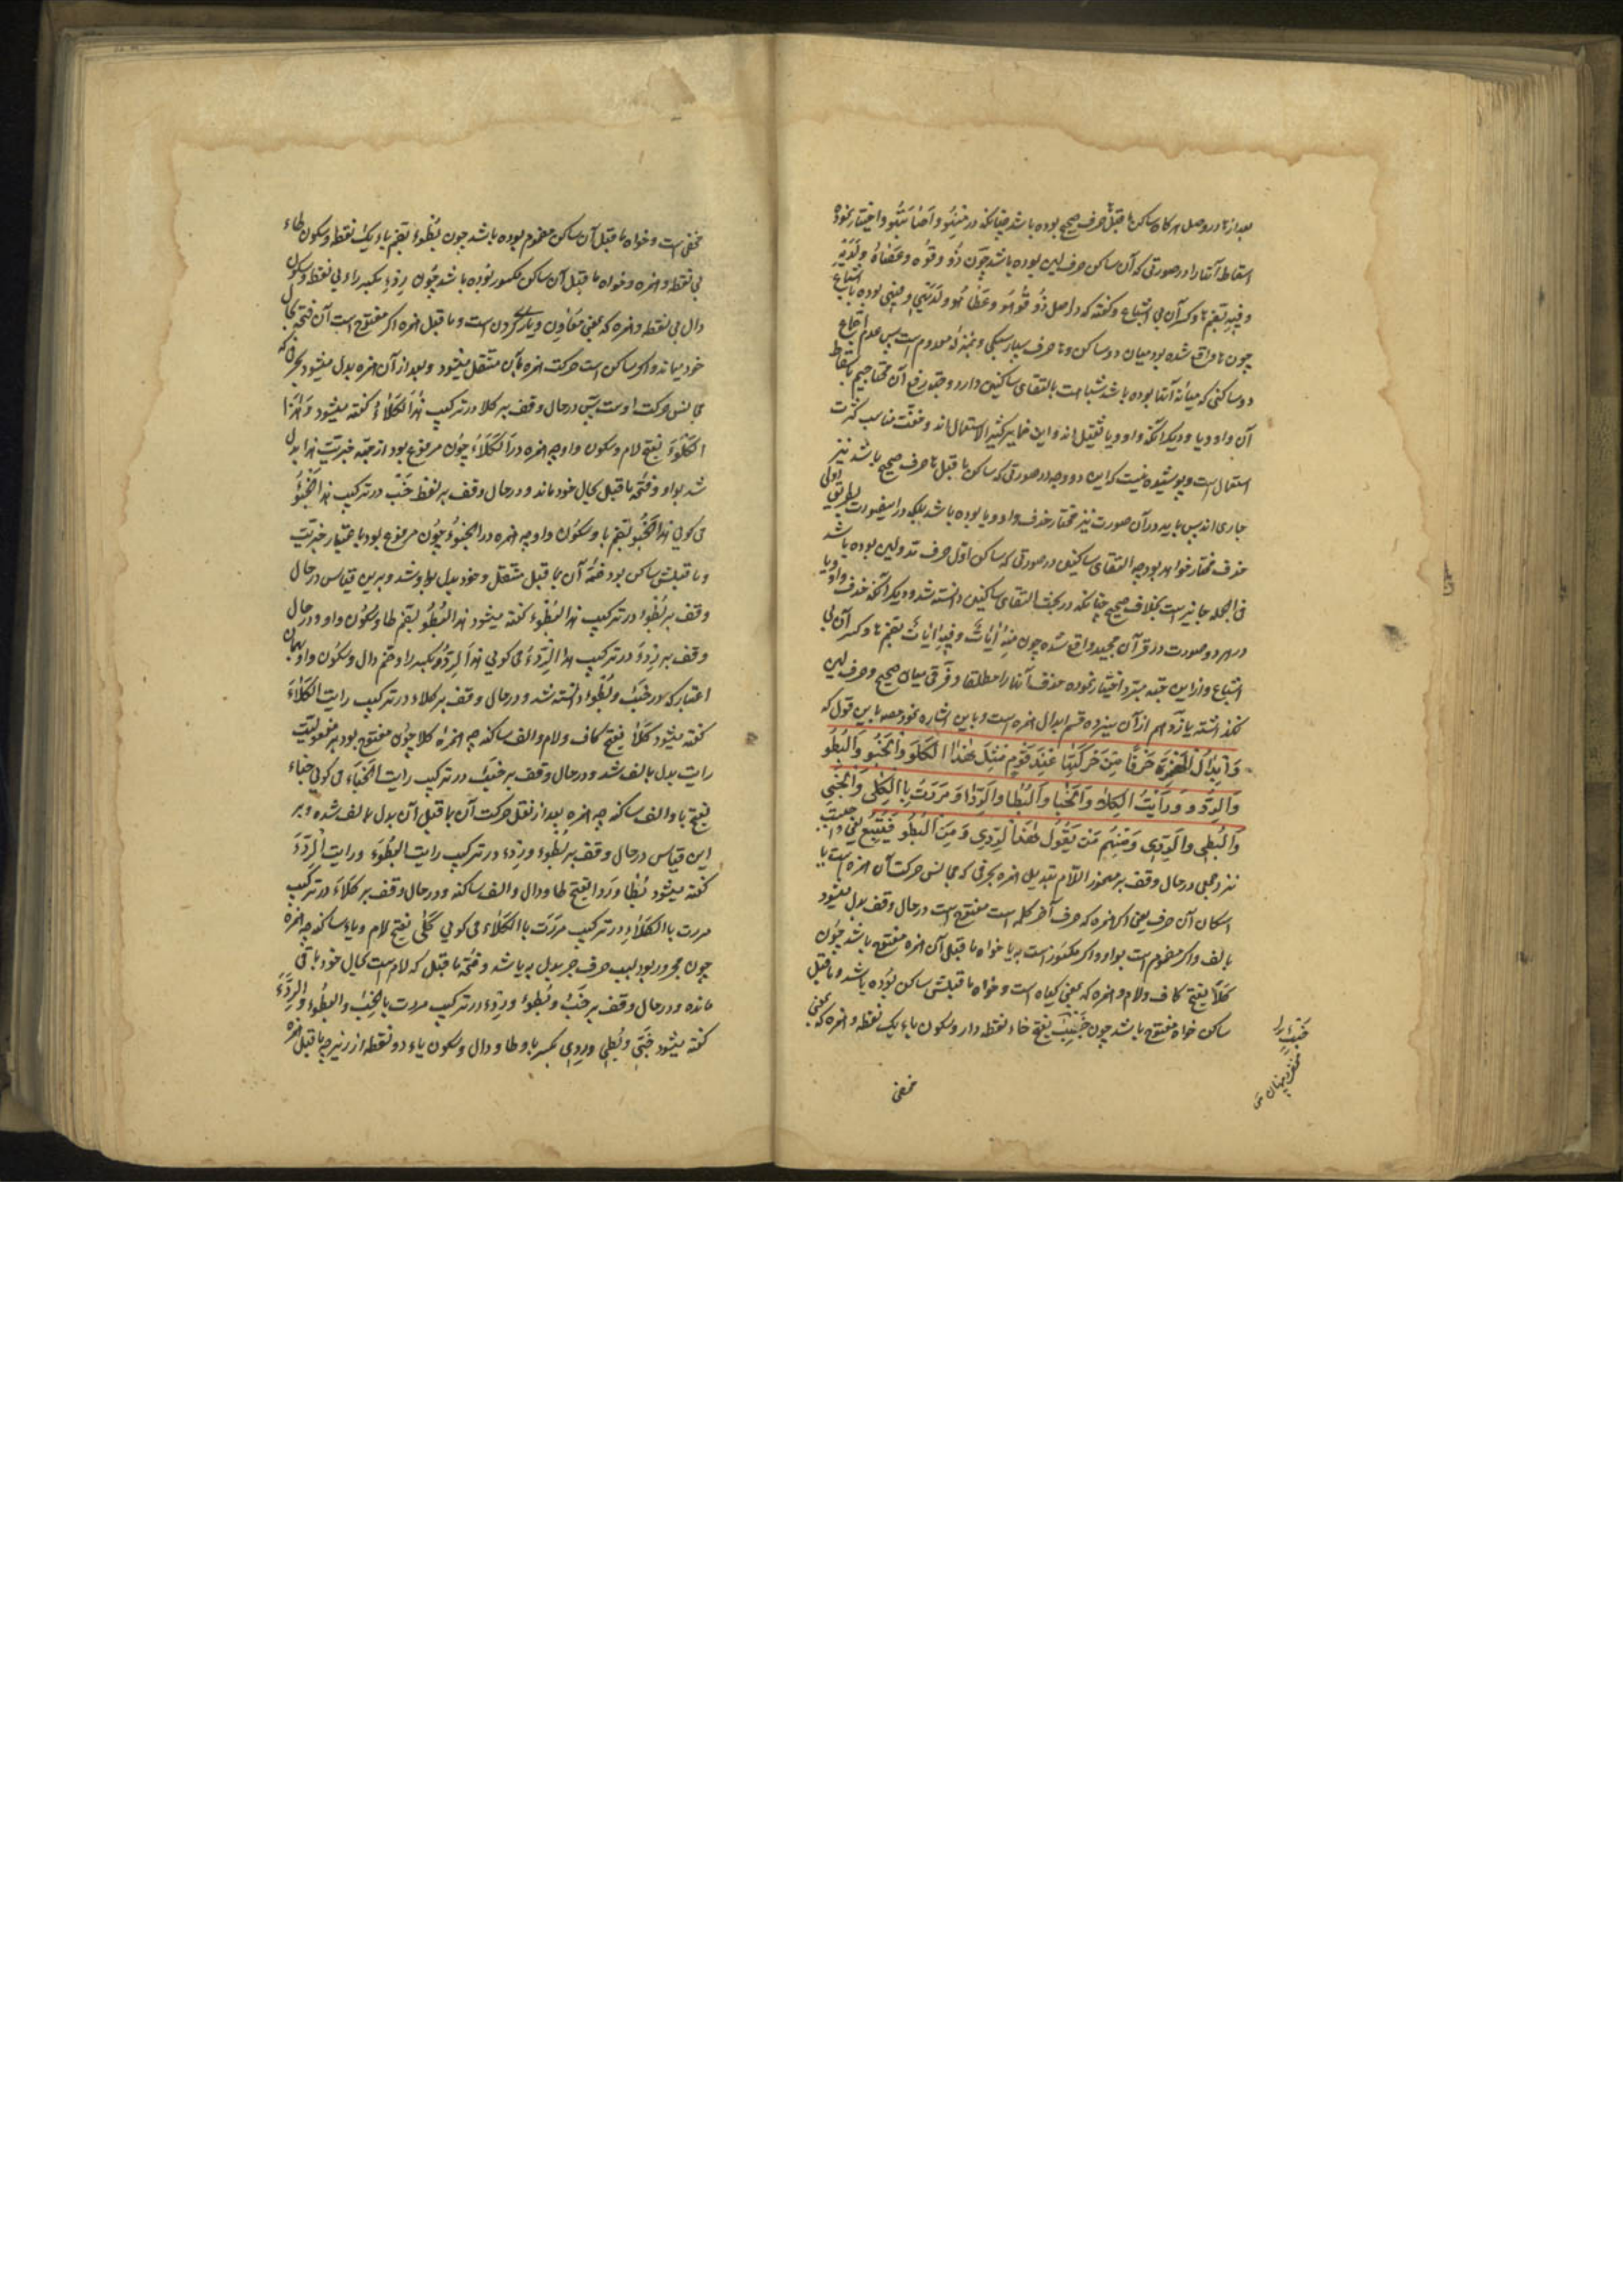 بعد از ها در وصل هرکاه ساکن ما قبل ها حرف صحیح بوده باشد چنانکه در منهو و اصابتهو و اختیار نموده
اسقاط آنها را در صورتی که آن ساکن حرف لین بوده باشد چون ذو وقوه و عصاه و لدیه
و فیه بضم ها و کسر آن بی اشباع و کفته که در اصل
چون ها واقع شده بود میان دو ساکن و ها حرف بسیار سبکی و بمنزله معدوم است پس عدم اجتماع
دو ساکنی که میانه آنها بوده باشد شباهت بالتقای ساکنین دارد و جهة رفع آن محتاجیم باسقاط
آن واو و یا و دیکر آنکه واو و یا ثقیل اند و این ضمایر کثیر الاستعمال اند و خفت مناسب کثرت
استعمال است و پوشیده نیست که این دو وجه در صورتی که ساکن ما قبل ها حرف صحیح باشد نیز
جاری اند پس باید در آن صورت نیز مختار حذف واو و یا بوده باشد بلکه در اینصورت بطریق اولی
حذف مختار خواهد بود چه التقای ساکنین در صورتی که ساکن اول حرف مد و لین بوده باشد
فی الجمله جایز است بخلاف صحیح چنانکه در بحث التقای ساکنین دانسته شد و دیکر آنکه حذف واو و یا
در هر دو صورت در قرآن مجید واقع شده چون منه آیات و فیه آیات بضم ها و کسر آن بی
اشباع و از این جهة مبرد اختیار نموده حذف آنها را مطلقا و فرقی میان صحیح و حرف لین
نکذاشته یازدهم از آن سیزده قسم ابدال همزه است و باین اشاره نمود مصه باین قول که
وَاِبْدَالُ الْهَمْزَةِ حَرْفًا مِنْ حَرَكَتِهَا عِنْدَ قَوْمٍ مِثْلَ هٰذَا الْكَلَوْ وَالْخَبُو وَالْبُطُو
وَالرِدُو وَ رَاَيْتُ الْكَلا وَالْخَبَا وَالْبُطَا وَالرِدَا وَ مَرَرْتُ بِالْكَلَى وَالْخَبِى
وَالْبُطِى وَالرِدِى وَمِنْهُم مَنْ يَقُولُ هٰذَا الرِدِى وَ مِنَ الْبُطُو فَيُتْبِعُ یعنی
نزد جمعی در حال وقف بر مهموز اللام تبدیل همزه بحرفی که مجانس حرکت آن همزه است با
اسکان آن حرف یعنی اکر همزه که حرف آخر کلمه است مفتوح است در حال وقف بدل میشود
بالف و اکر مضموم است بواو و اکر مکسور است به یا خواه ما قبل آن همزه مفتوح باشد چون
کلأ بفتح کاف و لام و همزه که بمعنی کیاه است و خواه ما قبلش ساکن بوده باشد و ما قبل
ساکن خواه مفتوح باشد چون خبء بفتح خاء نقطه دار و سکون باء یک نقطه و همزه که بمعنی
مخفی
مخفی است و خواه ما قبل آن ساکن مضموم بوده باشد چون بُطْوء بضم باء یک نقطه و سکون طاء
بی نقطه و همزه و خواه ما قبل آن ساکن مکسور بوده باشد چون ردء بکسر راء بی نقطه و سکون
دال بی نقطه و همزه که بمعنی معاون و یاری کردن است و ما قبل همزه اکر مفتوح است آن فتحه بحال
خود میماند و اکر ساکن است حرکت همزه بآن منتقل میشود و بعد از آن همزه بدل میشود بحرفی که
مجانس حرکت اوست پس در حال وقف بر کلا در ترکیب هذا الکلأ کفته میشود هذا
الکلو بفتح لام و سکون واو چه همزه در الکلأ چون مرفوع بود از جهة خبریت هذا بدل
شد بواو و فتحه ما قبل بحال خود ماند و در حال وقف بر لفظ خبء در ترکیب هذا الخبؤ
می کویی هذا الخبو بضم با و سکون واو چه همزه در الخبوء چون مرفوع بود باعتبار خبریت
و ما قبلش ساکن بود ضمه آن بما قبل منتقل و خود بدل بواو شد و برین قیاس در حال
وقف بر بُطْوء در ترکیب هذا البُطْوء کفته میشود هذا البُطُو بضم طا و سکون واو و در حال
وقف بر ردء در ترکیب هذا الردء می کویی هذا الردو بکسر را و ضم دال و سکون واو بهمان
اعتبار که در خبء و بطوء دانسته شد و در حال وقف بر کلاء در ترکیب رایت الکلاء
کفته میشود کلا بفتح کاف و لام و الف ساکنه چه همزه کلا چون مفتوح بود بر مفعولیت
رایت بدل بالف شد و در حال وقف بر خبء در ترکیب رایت الخباء می کویی خباء
بفتح با و الف ساکنه چه همزه بعد از نقل حرکت آن بما قبل آن بدل بالف شده و بر
این قیاس در حال وقف بر بُطوء و ردء در ترکیب رایت البُطوء و رایت الردء
کفته میشود بُطا و رِدا بفتح طا و دال و الف ساکنه و در حال وقف بر کلاء در ترکیب
مررت بالکلاء در ترکیب مررت بالکلاء می کویی کلی بفتح لام و یاء ساکنه چه همزه
چون مجرور بود بسبب حرف جر بدل به یا شد و فتحه ما قبل که لام است بحال خود باقی
مانده و در حال وقف بر خبء و بُطوء و ردء در ترکیب مررت بالخبء و البُطوء و الردء
کفته میشود خبی و بُطی و رِدِی بکسر با و طا و دال و سکون یاء دو نقطه از زیر چه ما قبل همزه